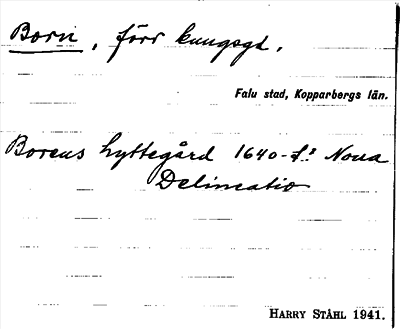 Born, förr kungsgd.
Falu stad, Kopparbergs län.
Boreus hyttegård 1640-t.: Nova
Delineatio
HARRY STÅHL 1941.